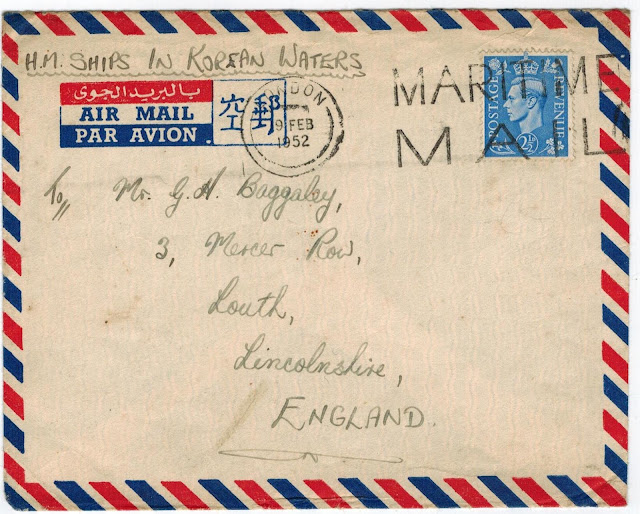 H.M. SHIPS IN KOREAN WATERS
بالبريد الجوى
AIR MAIL
PAR AVION
空郵
LONDON
9 FEB
1952
MARITIME
MAIL
POSTAGE
REVENUE
2½
To//
Mr. G. H. Baggaley,
3, Mercer Row,
Louth,
Lincolnshire,
ENGLAND.